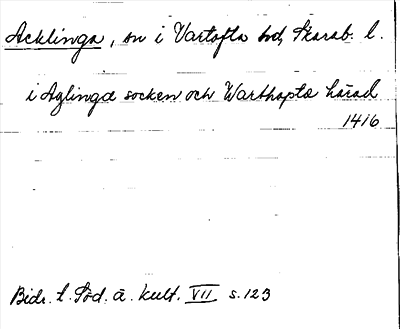 Acklinga, sn i Vartofta hd, Skarab. l.
i Aglinga socken och Warthapta härad
1416
Bidr. t. Söd. ä. kult. VII s. 123